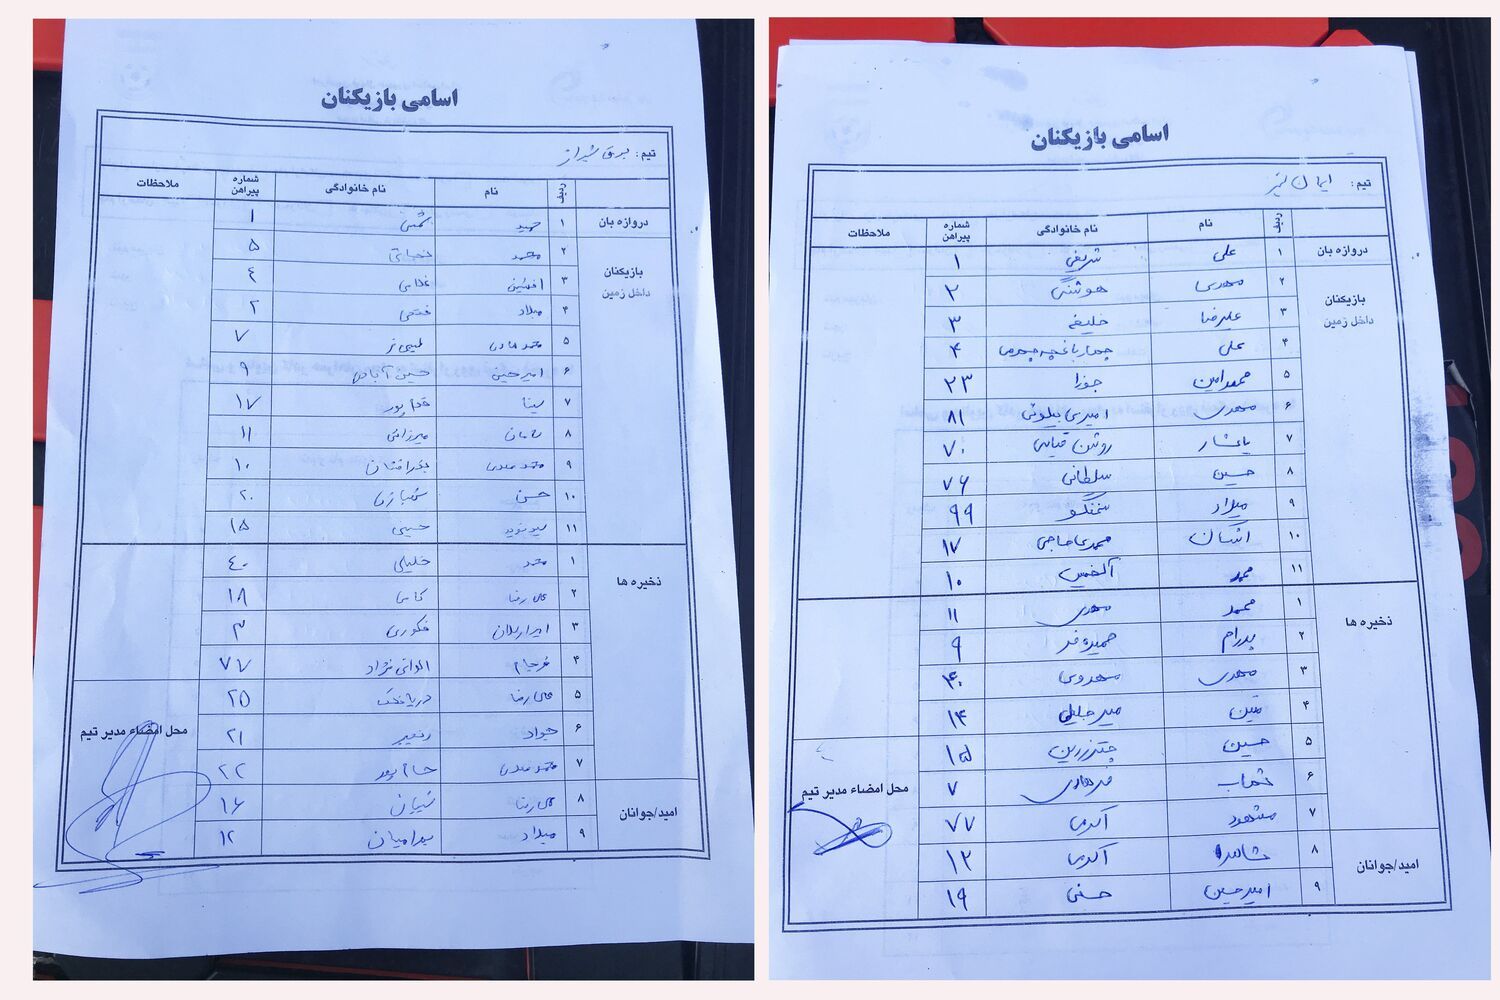 اسامی بازیکنان
تیم: برق شیراز
ردیف نام نام خانوادگی شماره پیراهن ملاحظات
دروازه بان ۱ حمید ۱
بازیکنان داخل زمین
۲ محمد نجباتی ۵
۳ افشین غلامی ۴
۴ میلاد فتحی ۲
۵ محمدهادی ۷
۶ امیرحسین حسین آبادی ۹
۷ سینا پور ۱۷
۸ سامان میرزائی ۱۱
۹ محمدمهدی ۱۰
۱۰ حسن شهبازی ۲۰
۱۱ حبیبی ۱۵
ذخیره ها
۱ محمد خلیلی ۴۰
۲ علی رضا ۱۸
۳ امیرارسلان شکوری ۳
۴ فرجام الوانی نژاد ۷۷
۵ علی رضا دریابخت ۲۵
۶ جواد رنجبر ۲۱
۷ محمدمهدی ۲۲
محل امضاء مدیر تیم
امید/جوانان
۸ علی رضا ۱۶
۹ میلاد بهرامیان ۱۲
اسامی بازیکنان
تیم:
ردیف نام نام خانوادگی شماره پیراهن ملاحظات
دروازه بان ۱ علی شریفی ۱
بازیکنان داخل زمین
۲ مهدی هوشنگی ۲
۳ علیرضا خلیفه ۳
۴ علی چهارباغچه جهرمی ۴
۵ محمدامین جوزا ۲۳
۶ مهدی امیری ۸۱
۷ ۷۰
۸ حسین سلطانی ۷۶
۹ میلاد ۹۹
۱۰ اشکان محمدی حاجی ۱۷
۱۱ محمد آلخمیس ۱۰
ذخیره ها
۱ محمد مهدی ۱۱
۲ پدرام حمیده فر ۹
۳ مهدی مهدوی ۴۰
۴ متین میرجلیلی ۱۴
۵ حسین چترزرین ۱۵
۶ فرهادی ۷
۷ مشهود اکرمی ۷۷
محل امضاء مدیر تیم
امید/جوانان
۸ اکرمی ۱۲
۹ امیرحسین حسنی ۱۹